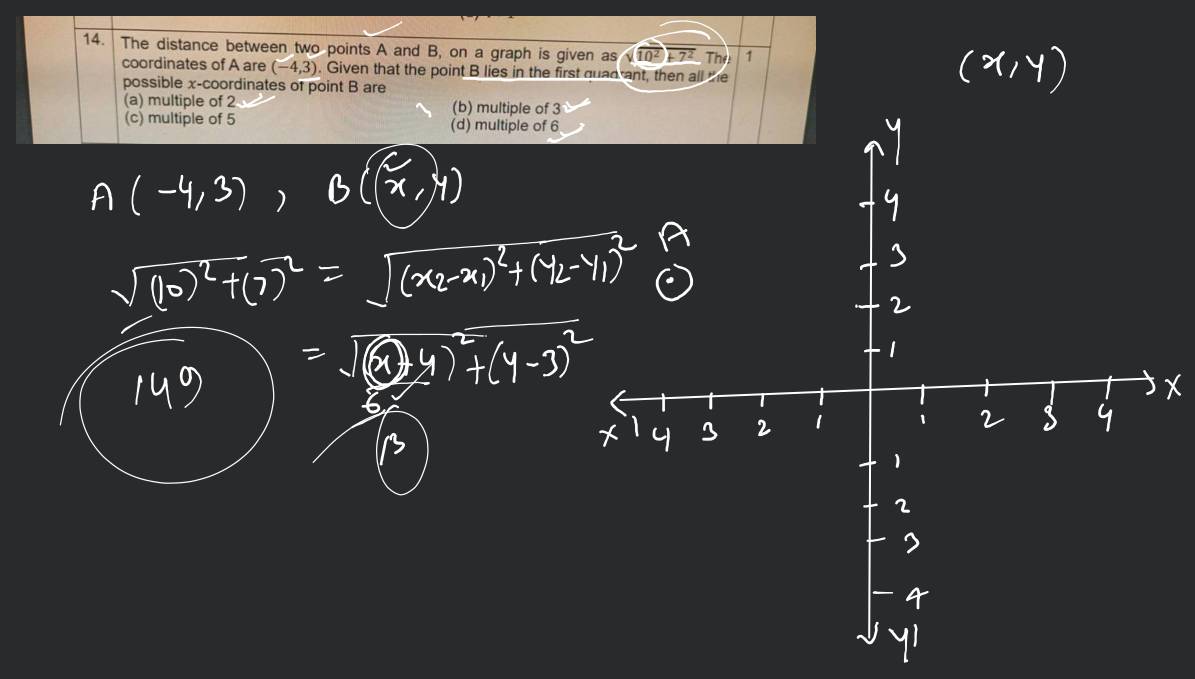 14. The distance between two points A and B, on a graph is given as √10² + 7² The 1
coordinates of A are (−4,3). Given that the point B lies in the first quadrant, then all the
possible x-coordinates of point B are
(a) multiple of 2 (b) multiple of 3
(c) multiple of 5 (d) multiple of 6
(x,y)
A(-4,3), B(x,y)
√(10)²+(7)² = √(x₂-x₁)²+(y₂-y₁)² A
= √(x+4)²+(y-3)²
149
6
B
y
4
3
2
1
x' 4 3 2 1 1 2 3 4 x
1
2
3
4
y'